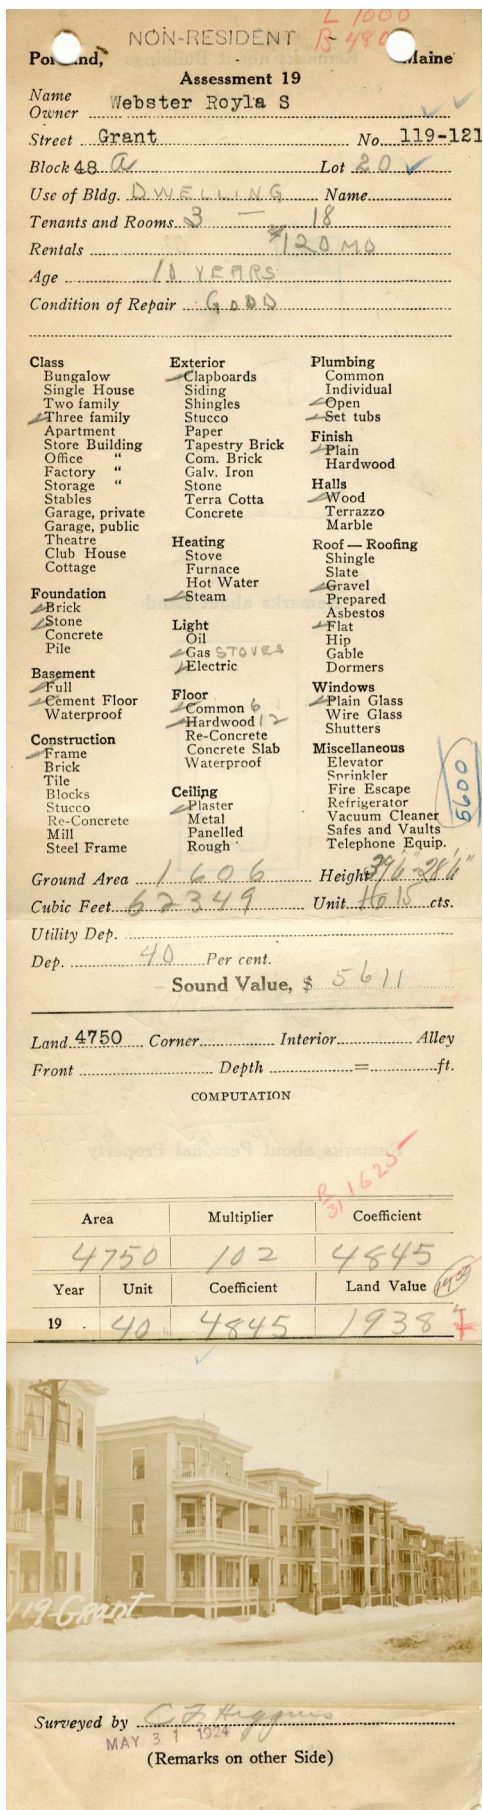 L 1000
NON-RESIDENT
B 480
Portland, Maine
Assessment 19
Name
Owner Webster Royla S
Street Grant No. 119-121
Block 48 a Lot 20
Use of Bldg. DWELLING Name
Tenants and Rooms 3 — 18
Rentals $120 MO
Age 10 YEARS
Condition of Repair GOOD
Class
Bungalow
Single House
Two family
Three family
Apartment
Store Building
Office "
Factory "
Storage "
Stables
Garage, private
Garage, public
Theatre
Club House
Cottage
Foundation
Brick
Stone
Concrete
Pile
Basement
Full
Cement Floor
Waterproof
Construction
Frame
Brick
Tile
Blocks
Stucco
Re-Concrete
Mill
Steel Frame
Exterior
Clapboards
Siding
Shingles
Stucco
Paper
Tapestry Brick
Com. Brick
Galv. Iron
Stone
Terra Cotta
Concrete
Heating
Stove
Furnace
Hot Water
Steam
Light
Oil
Gas STOVES
Electric
Floor
Common 6
Hardwood 12
Re-Concrete
Concrete Slab
Waterproof
Ceiling
Plaster
Metal
Panelled
Rough
Plumbing
Common
Individual
Open
Set tubs
Finish
Plain
Hardwood
Halls
Wood
Terrazzo
Marble
Roof — Roofing
Shingle
Slate
Gravel
Prepared
Asbestos
Flat
Hip
Gable
Dormers
Windows
Plain Glass
Wire Glass
Shutters
Miscellaneous
Elevator
Sprinkler
Fire Escape
Refrigerator
Vacuum Cleaner
Safes and Vaults
Telephone Equip.
5600
Ground Area 1606 Height 39'6" - 28'6"
Cubic Feet 62349 Unit 16 15 cts.
Utility Dep.
Dep. 40 Per cent.
Sound Value, $ 5611
Land 4750 Corner Interior Alley
Front Depth = ft.
COMPUTATION
B/31 1625
Area Multiplier Coefficient
4750 102 4845
Year Unit Coefficient Land Value
19 . 40 4845 1938
119-Grant
Surveyed by C F Higgins
MAY 31 1924
(Remarks on other Side)